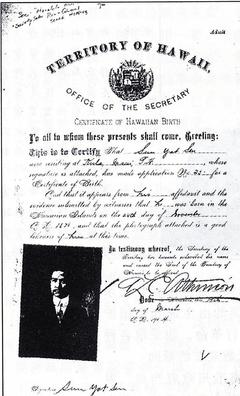 TERRITORY OF HAWAII,
OFFICE OF THE SECRETARY
CERTIFICATE OF HAWAIIAN BIRTH
To all to whom these presents shall come, Greeting:
This is to Certify That Sun Yat Sen
now residing at Kula, Maui, T.H., whose
signature is attached, has made application No. for a
Certificate of Birth.
And that it appears from his affidavit and the
evidence submitted by witnesses that he was born in the
Hawaiian Islands on the 24th day of November
A. D. 1870, and that the photograph attached is a good
likeness of him at this time.
In testimony whereof, the Secretary of the
Territory has hereunto subscribed his
name and caused the Seal of the Territory of
Hawaii to be affixed.
Atkinson
day of March
A. D. 1904
Sun Yat Sen